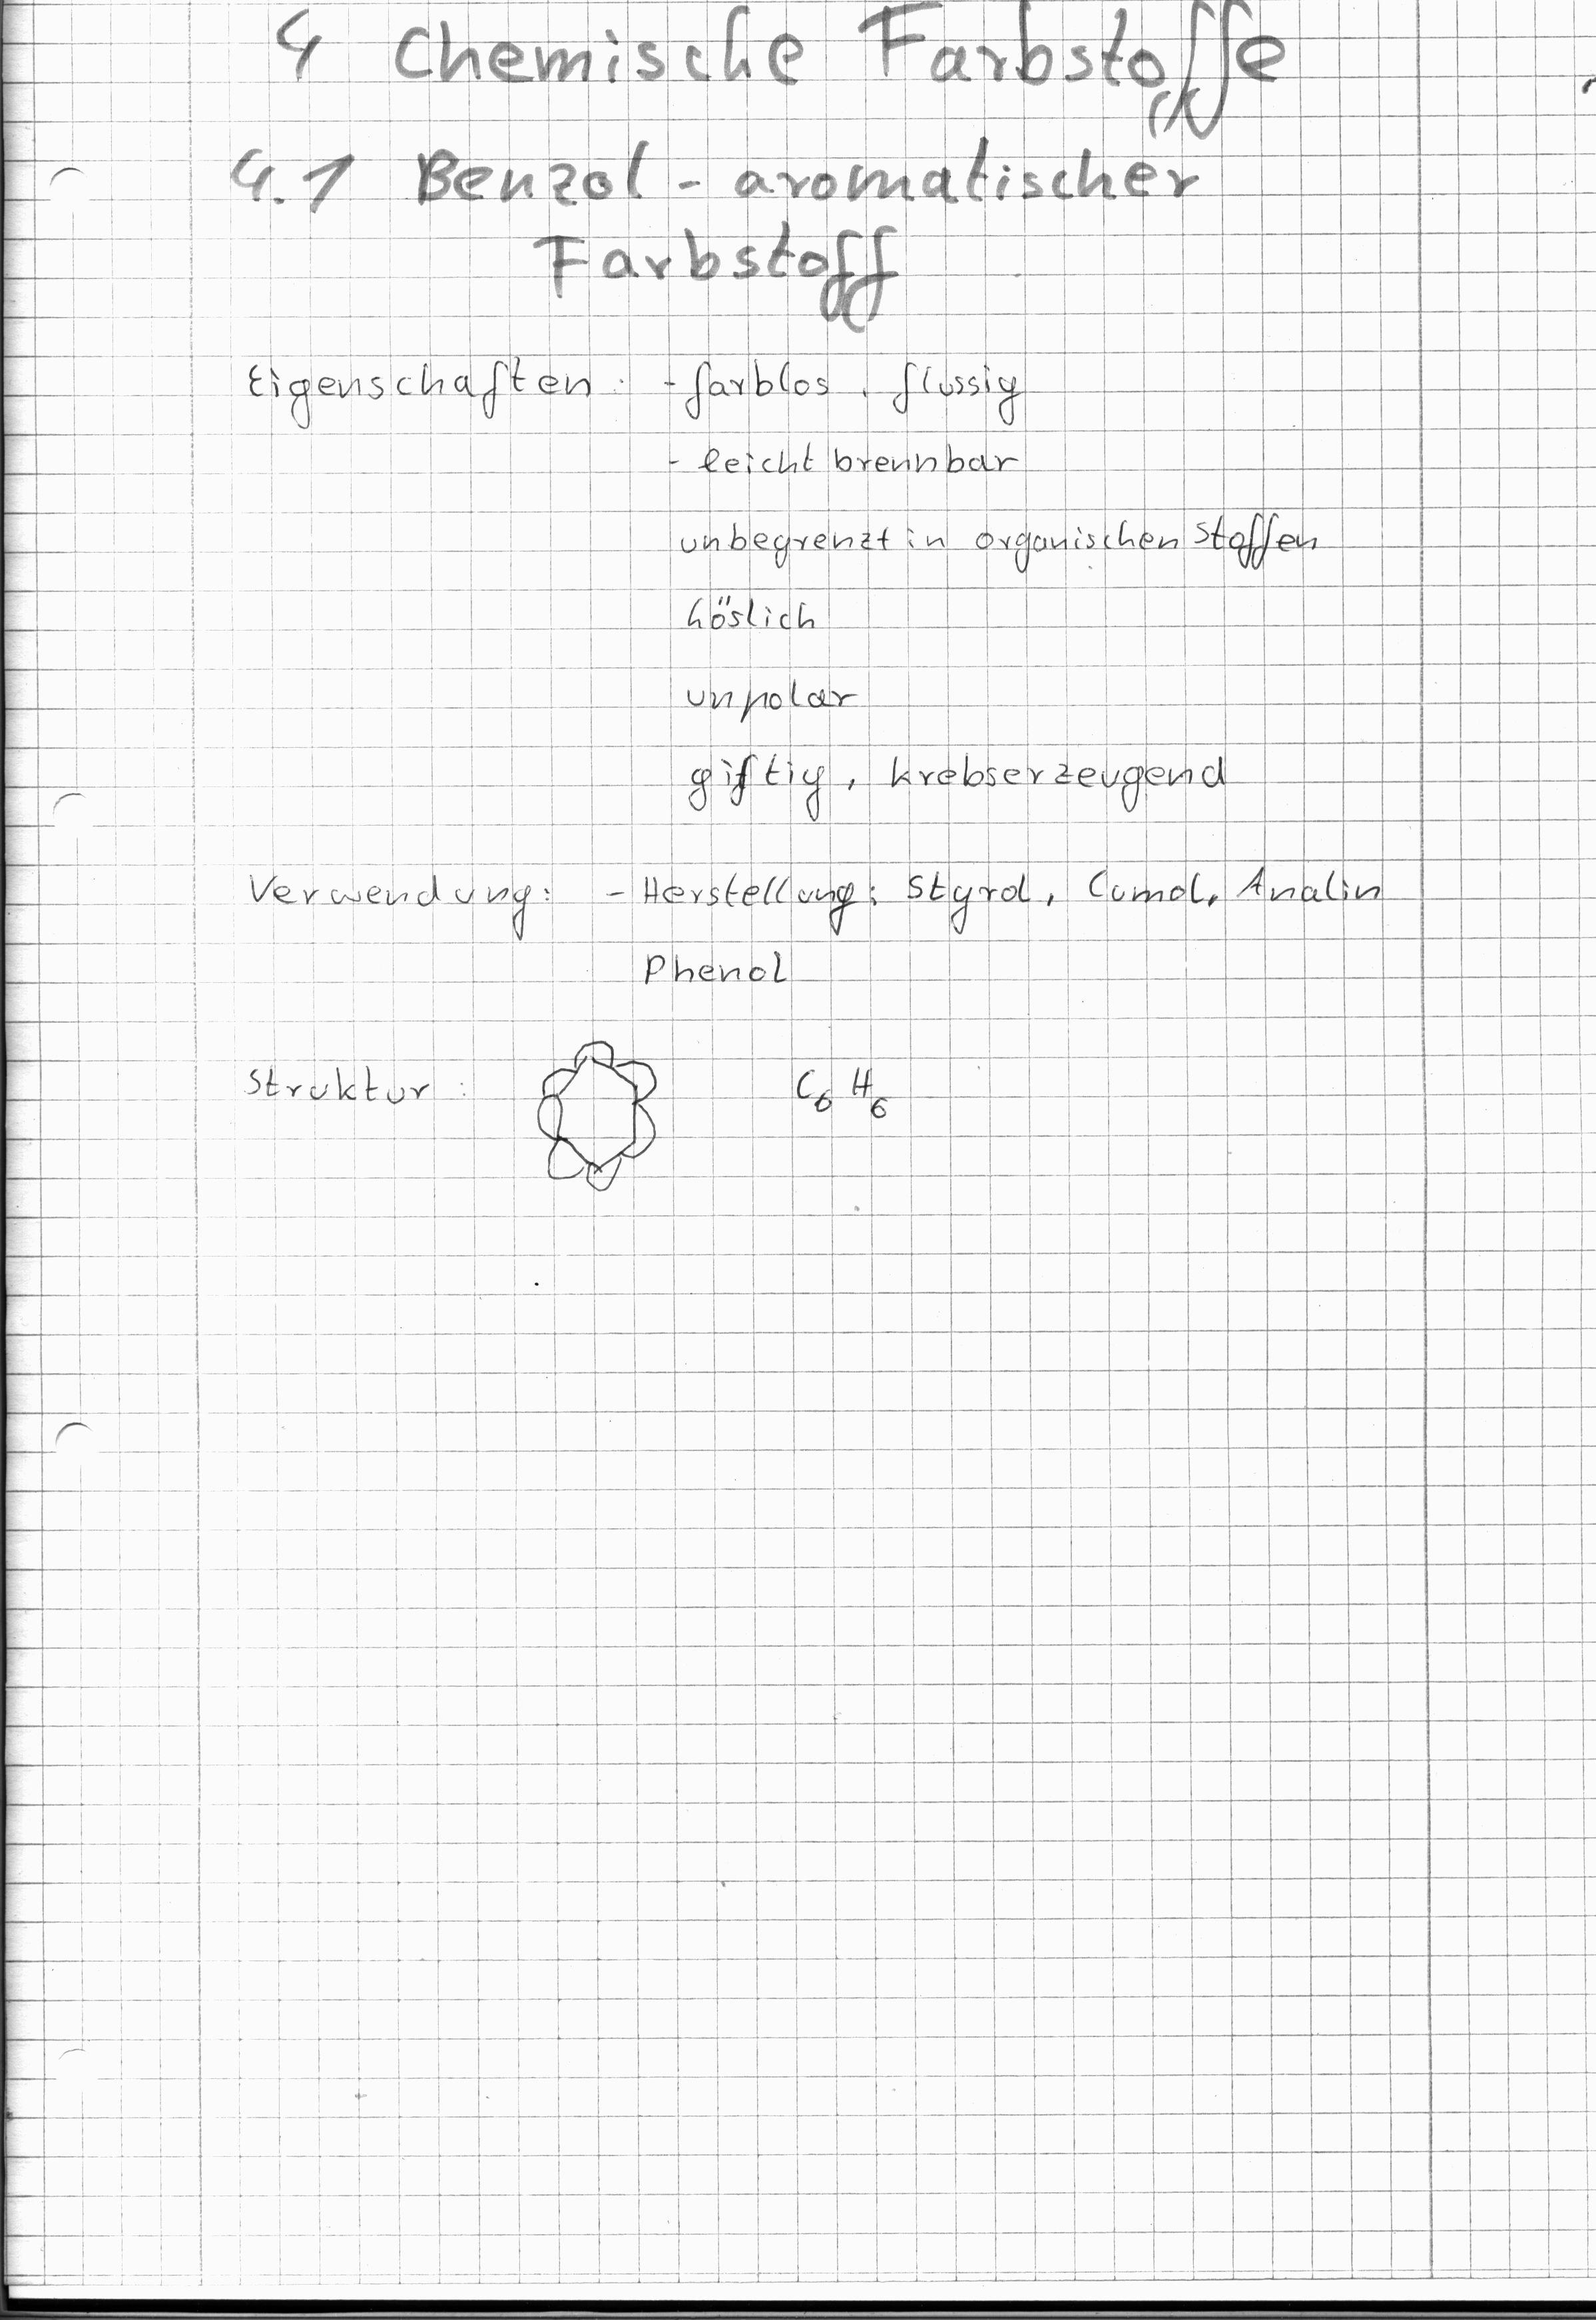 4 Chemische Farbstoffe
4.1 Benzol - aromatischer
Farbstoff
Eigenschaften: - farblos, flüssig
- leicht brennbar
unbegrenzt in organischen Stoffen
höslich
unpolar
giftig, krebserzeugend
Verwendung: - Herstellung: Styrol, Cumol, Analin
Phenol
Struktur: C₆ H₆